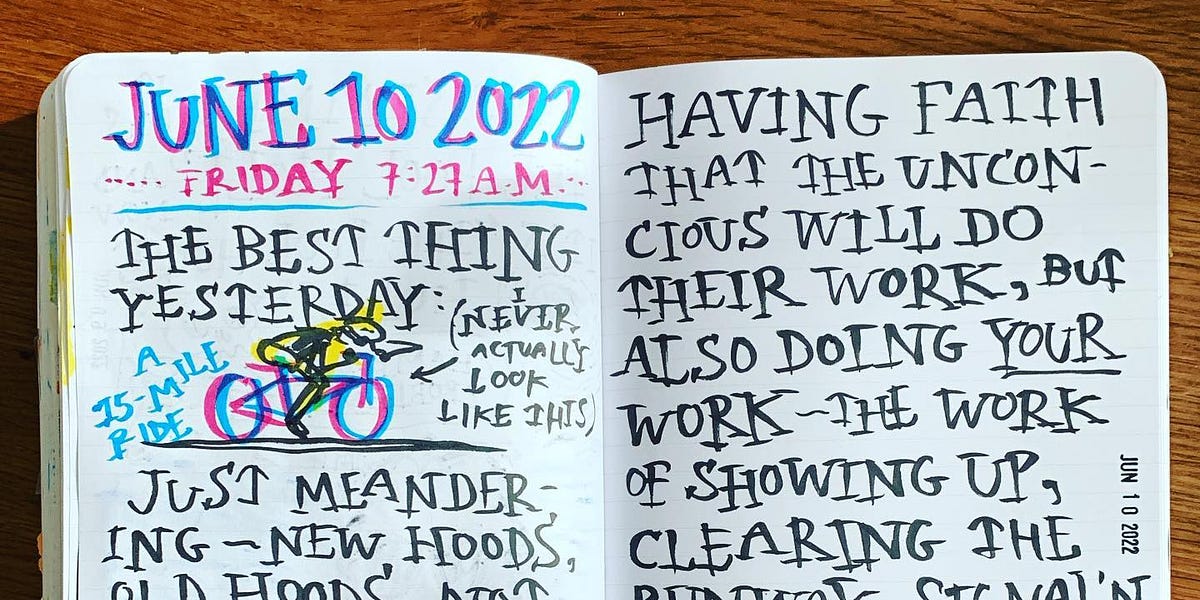 JUNE 10 2022
..... FRIDAY 7:27 A.M. ...
THE BEST THING
YESTERDAY:
(I
NEVER
ACTUALLY
LOOK
LIKE THIS)
A
15-MILE
RIDE
JUST MEANDER-
ING —NEW HOODS,
OLD HOODS, NOT
HAVING FAITH
THAT THE UNCON-
CIOUS WILL DO
THEIR WORK, BUT
ALSO DOING YOUR
WORK —THE WORK
OF SHOWING UP,
CLEARING THE
RUNWAY, SIGNAL'N
JUN 10 2022